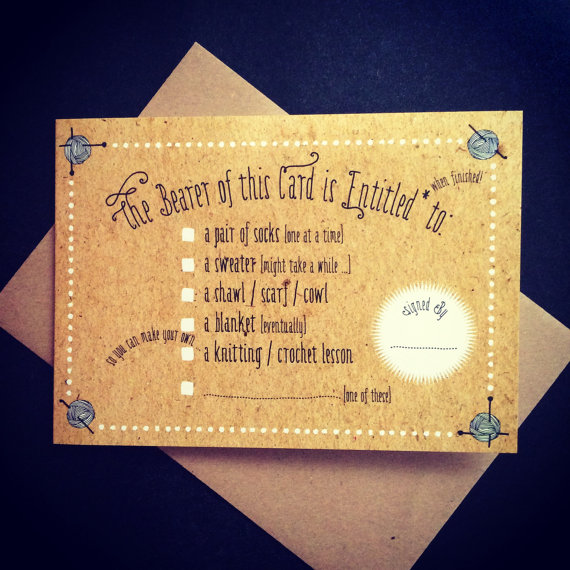 The Bearer of this Card is Entitled * to:
* when finished!
a pair of socks [one at a time]
a sweater [might take a while ...]
a shawl / scarf / cowl
a blanket [eventually]
so you can make your own...
a knitting / crochet lesson
[one of these]
Signed By